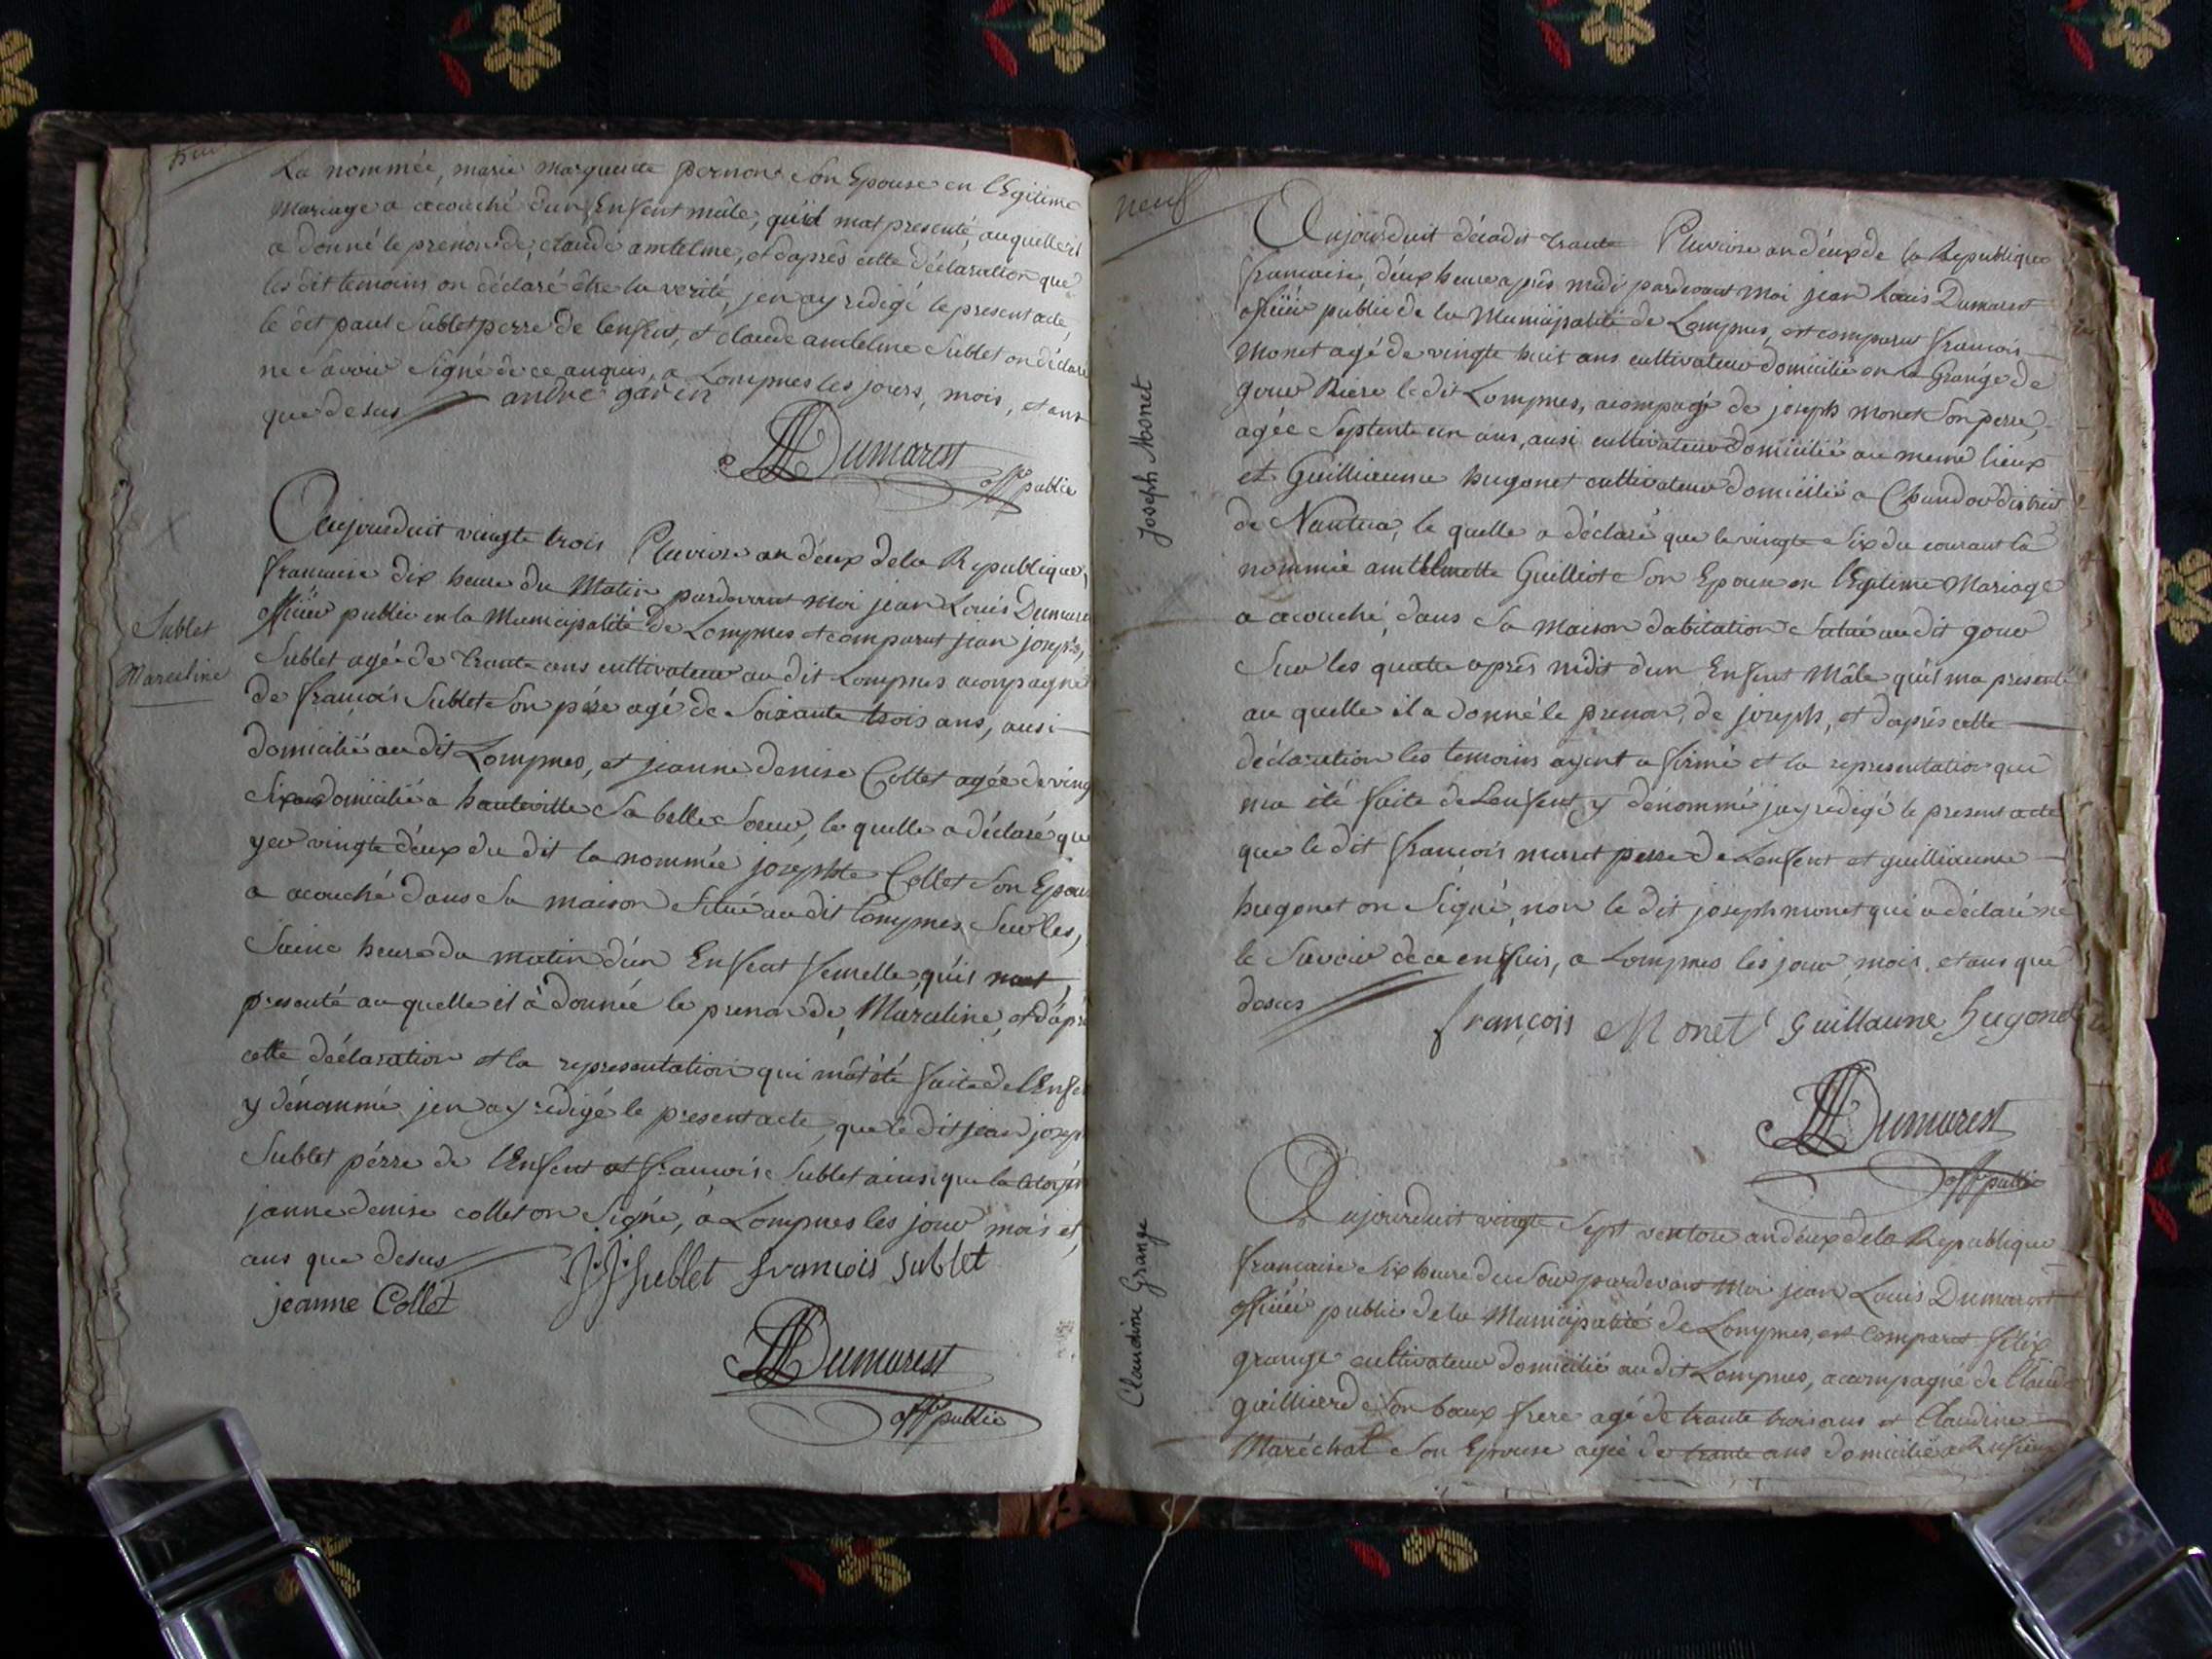 La nommée, marie marguerite pernon son Epouse en l'Egitime
Mariage a acouché d'un Enfent mâle, quil mat presenté, auquelle il
a donné le prenon de, claude antelme, et daprês cette déclaration que
les dit temoins on déclaré être la verité, jen ay redigé le present acte,
le dit paul Sublet perre de lenfent, et claude antelme Sublet on déclaré
ne Savoir Signé de ce anquis, a Lompnes les jours, mois, et ans
que desus andré garin
Dumarest
off public
Sublet
Marceline
Aujourduit vingte trois Pluviose an deux dela Republique,
francaise dix heure du Matin pardevant Moi jean Louis Dumares
officier public en la Municipalité de Lompnes et comparut jean joseph,
Sublet agé de trante ans cultivateur au dit Lompnes acompagné
de francois Sublet Son pére agé de Soixante trois ans, ausi
domicilié au dit Lompnes, et jeanne denise Collet agée de ving
Six ans domicilié a hauteville Sa belle Soeur, le quelle a déclaré que
yer vingte deux du dit la nommée josephte Collet Son Epou
a acouché dans Sa maison Situé au dit Lompnes Sur les,
Saine heure du matin d'un Enfent femelle, quil mat,
presenté au quelle il à donnée le prenon de, Marceline, et d'apré
cette déclaration et la representation qui màt été faite de l'Enfen
y dénommé jen ay redigé le present acte, que le dit jean josep
Sublet pérre de l'Enfent et francois Sublet ainsi que la
janne denise collet on Signé, à Lompnes les jour mois et,
ans que desus J J Sublet francois Sublet
jeanne Collet
Dumarest
off public
neuf
Joseph Monet
Aujourduit décadit trante Pluviose an déux de la Republique
francaise, déux heure aprês midi pardevant Moi jean Louis Dumarest
officier public de la Municipalité de Lompnes, est comparut francois
Monet agé de vingte huit ans cultivateur domicilié en la Grange de
gour Riere le dit Lompnes, acompagé de joseph monet Son perre,
agée Septente un ans, ausi cultivateur domicilié au meme lieux
et Guilliaume hugonet cultivateur domicilié a Chandor district
de Nantua, le quelle a déclaré que le vingte Six du courant la
nommée anthelmette Guilliot Son Epouse en l'Egitime Mariage
a acouché, dans Sa maison dabitation Situé au dit gour
Sur les quatre aprês midit dun Enfent Mâle quil ma presenté
au quelle il a donné le prenon, de joseph, et daprés cette
déclaration les temoins ayent afirmé et la representation que
ma été faite de Lenfent y dénommé jay redigé le present acte
que le dit francois monet perre de Lenfent et guilliaume
hugonet on Signé, non le dit joseph monet qui a déclaré ne
le Savoir de ce enquis, a Lompnes les jour mois, et ans que
desus
françois Monet Guillaume hugonet
Dumarest
off public
Claudine Grange
Aujourduit vingte Sept ventose an déux dela Republique
francaise Six heure du Soir pardevant Moi jean Louis Dumarest
officié public dela Municipalité de Lompnes, est Comparut félix
grange cultivateur domicilié au dit Lompnes, acompagné de Claude
guillierde Son baux frere agé de trante trois ans et Claudine
Maréchal Son Epouse agée de trante ans domicilié a Rufieux